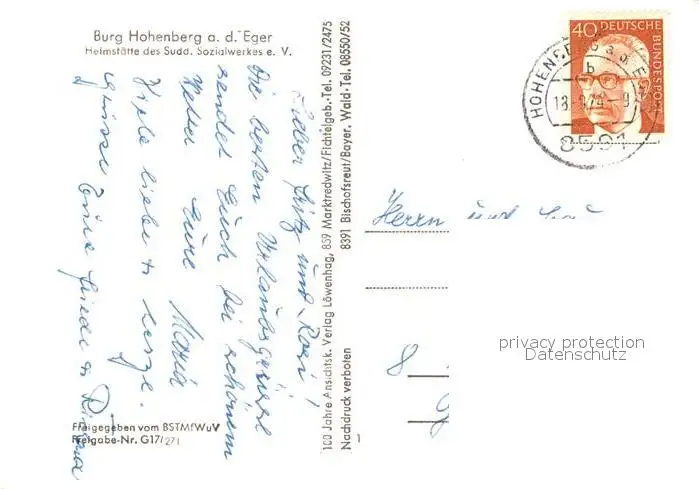 Burg Hohenberg a. d. Eger
Heimstätte des Sudd. Sozialwerkes e. V.
Lieber Fritz und Rosi!
Die besten Urlaubsgrüsse
sendet Euch bei schönem
Wetter Eure Maria
Viele liebe
Grüsse Eure
Freigegeben vom BSTMfWuV
Freigabe-Nr. G17/271
100 Jahre Ansichtsk. Verlag Löwenhag, 859 Marktredwitz/Fichtelgeb.-Tel. 09231/2475
8391 Bischofsreut/Bayer. Wald-Tel. 08550/52
Nachdruck verboten
1
40 DEUTSCHE
BUNDESPOST
HOHENBERG a. d. EGER
b
8591
Herrn und
8
privacy protection
Datenschutz